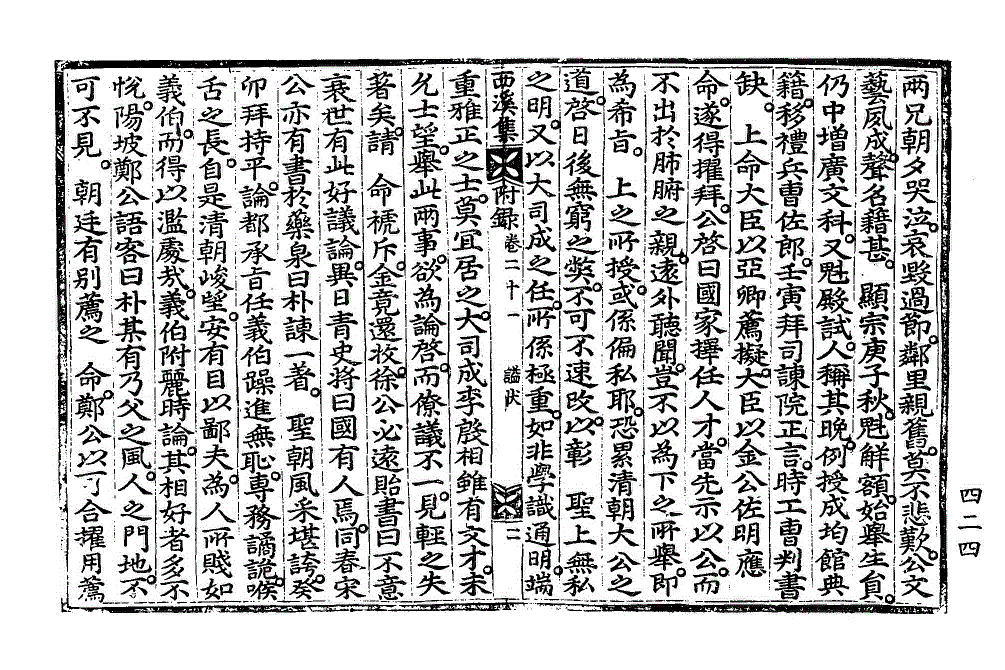 兩兄朝夕哭泣。哀毀過節。鄰里親舊。莫不悲歎。公文
藝夙成。聲名籍甚。 顯宗庚子秋。魁解額。始擧生員。
仍中增廣文科。又魁殿試。人稱其晩。例授成均館典
籍。移禮兵曹佐郎。壬寅拜司諫院正言。時工曹判書
缺。 上命大臣以亞卿薦擬。大臣以金公佐明應
命。遂得擢拜。公啓曰國家擇任人才。當先示以公。而
不出於肺腑之親。遠外聽聞。豈不以爲下之所擧。卽
爲希旨。 上之所授。或係偏私耶。恐累清朝大公之
道。啓日後無窮之弊。不可不速改。以彰 聖上無私
之明。又以大司成之任。所係極重。如非學識通明。端
西溪集 附錄 卷二十一 諡狀 二
重雅正之士。莫宜居之。大司成李殷相雖有文才。未
允士望。擧此兩事。欲爲論啓。而僚議不一。見輕之失
著矣。請 命褫斥。金竟還收。徐公必遠貽書曰不意
衰世有此好議論。異日青史將曰國有人焉。同春宋
公亦有書於藥泉曰朴諫一着。 聖朝風采堪誇。癸
卯拜持平。論都承旨任義伯躁進無恥。專務譎詭。喉
舌之長。自是清朝峻望。安有目以鄙夫。爲人所賤如
義伯。而得以濫處哉。義伯附麗時論。其相好者多不
悅。陽坡鄭公語客曰朴某有乃父之風。人之門地。不
可不見。 朝廷有別薦之 命。鄭公以可合擢用薦
四二四